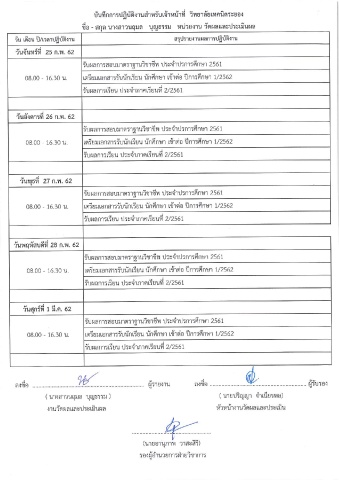 บันทึกการปฏิบัติงานสำหรับเจ้าหน้าที่ วิทยาลัยเทคนิคระยอง
ชื่อ - สกุล นางสาวนฤมล บุญธรรม หน่วยงาน วัดผลและประเมินผล
วัน เดือน ปี/เวลาปฏิบัติงาน สรุปรายงานผลการปฏิบัติงาน
วันจันทร์ที่ 25 ก.พ. 62
รับผลการสอบมาตราฐานวิชาชีพ ประจำปีการศึกษา 2561
08.00 - 16.30 น. เตรียมเอกสารรับนักเรียน นักศึกษา เข้าต่อ ปีการศึกษา 1/2562
รับผลการเรียน ประจำภาคเรียนที่ 2/2561
วันอังคารที่ 26 ก.พ. 62
รับผลการสอบมาตราฐานวิชาชีพ ประจำปีการศึกษา 2561
08.00 - 16.30 น. เตรียมเอกสารรับนักเรียน นักศึกษา เข้าต่อ ปีการศึกษา 1/2562
รับผลการเรียน ประจำภาคเรียนที่ 2/2561
วันพุธที่ 27 ก.พ. 62
รับผลการสอบมาตราฐานวิชาชีพ ประจำปีการศึกษา 2561
08.00 - 16.30 น. เตรียมเอกสารรับนักเรียน นักศึกษา เข้าต่อ ปีการศึกษา 1/2562
รับผลการเรียน ประจำภาคเรียนที่ 2/2561
วันพฤหัสบดีที่ 28 ก.พ. 62
รับผลการสอบมาตราฐานวิชาชีพ ประจำปีการศึกษา 2561
08.00 - 16.30 น. เตรียมเอกสารรับนักเรียน นักศึกษา เข้าต่อ ปีการศึกษา 1/2562
รับผลการเรียน ประจำภาคเรียนที่ 2/2561
วันศุกร์ที่ 1 มี.ค. 62
รับผลการสอบมาตราฐานวิชาชีพ ประจำปีการศึกษา 2561
08.00 - 16.30 น. เตรียมเอกสารรับนักเรียน นักศึกษา เข้าต่อ ปีการศึกษา 1/2562
รับผลการเรียน ประจำภาคเรียนที่ 2/2561
ลงชื่อ ผู้รายงาน ลงชื่อ ผู้รับรอง
( นางสาวนฤมล บุญธรรม ) ( นายปริญญา
งานวัดผลและประเมินผล หัวหน้างานวัดผลและประเมิน
(นายอานุภาพ วาสะสิริ)
รองผู้อำนวยการฝ่ายวิชาการ